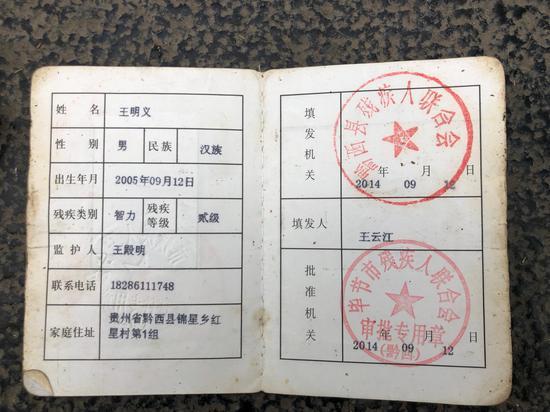 姓 名 王明义
性 别 男 民族 汉族
出生年月 2005年09月12日
残疾类别 智力 残疾等级 贰级
监 护 人 王殿明
联系电话 18286111748
家庭住址 贵州省黔西县锦星乡红
星村第1组
填发机关
黔西县残疾人联合会
年 月 日
2014 09 12
填发人 王云江
批准机关
毕节市残疾人联合会
审批专用章
(黔西)
年 月 日
2014 09 12